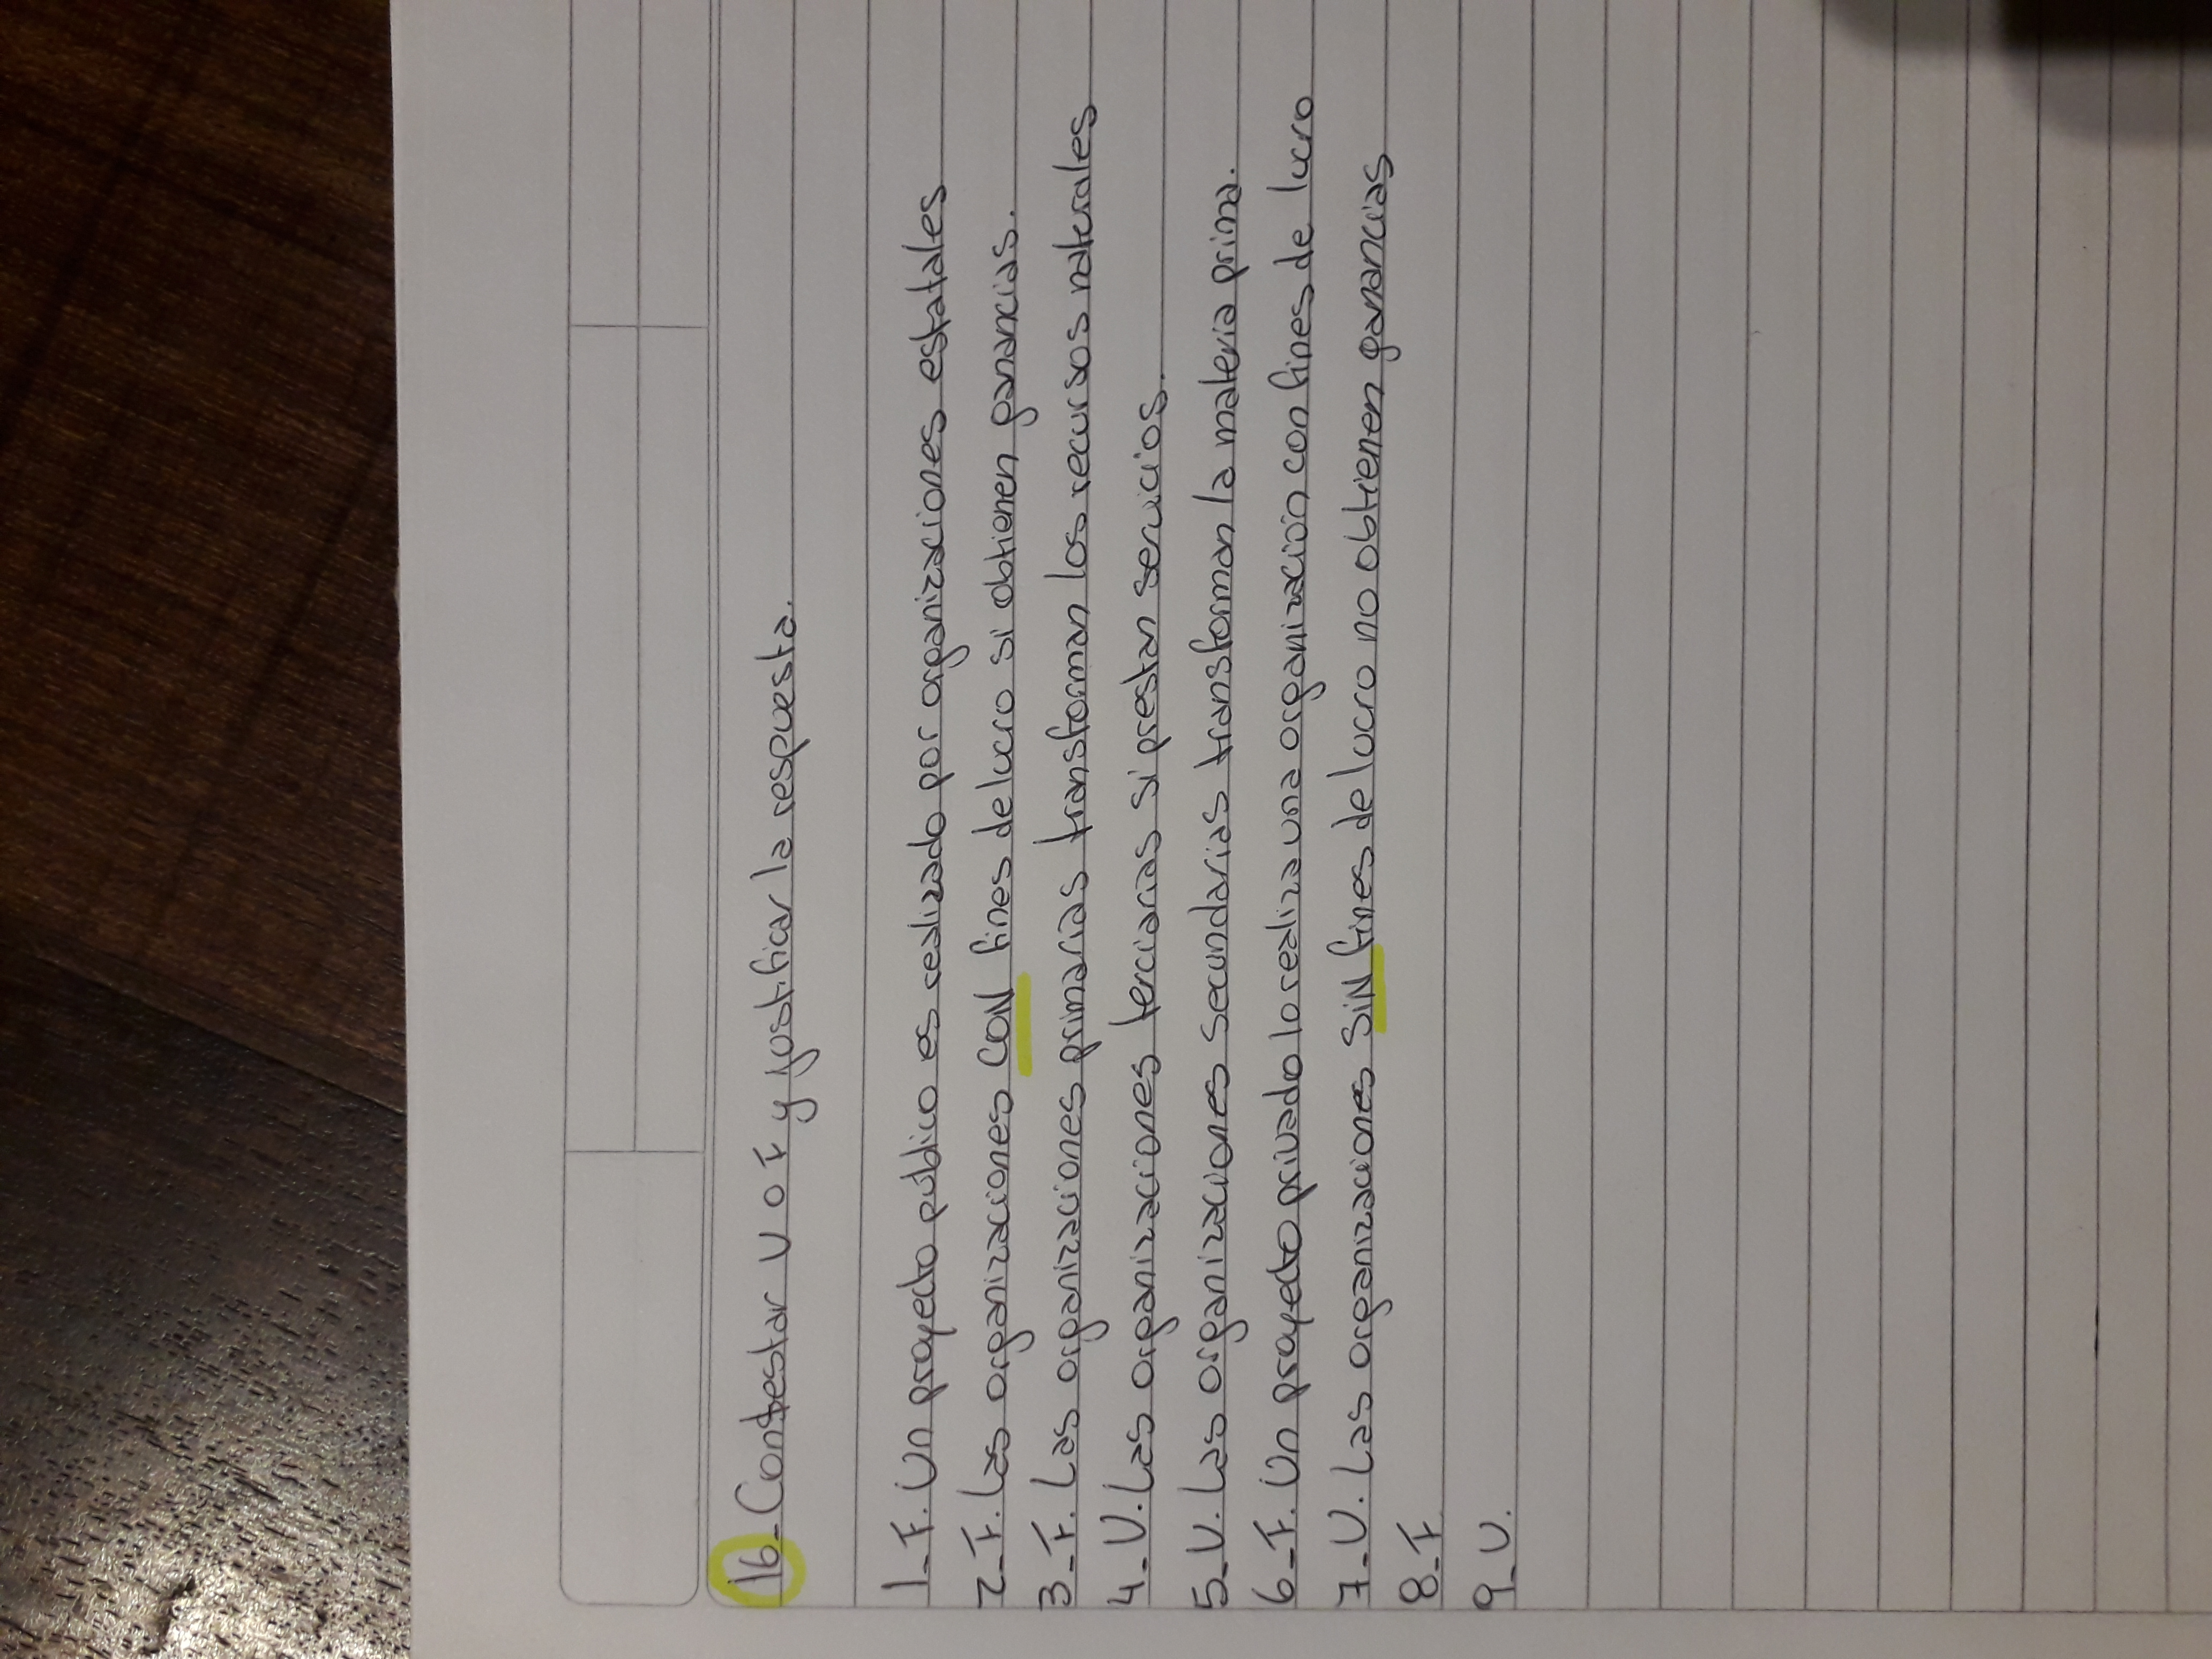 16_Contestar V o F y justificar la respuesta.
1_F. Un proyecto público es realizado por organizaciones estatales
2_F. Las organizaciones CON fines de lucro si obtienen ganancias.
3_F. Las organizaciones primarias transforman los recursos naturales
4_V. Las organizaciones terciarias si prestan servicios.
5_V. Las organizaciones secundarias transforman la materia prima.
6_F. Un proyecto privado lo realiza una organización con fines de lucro
7_V. Las organizaciones SIN fines de lucro no obtienen ganancias
8_F
9_V.